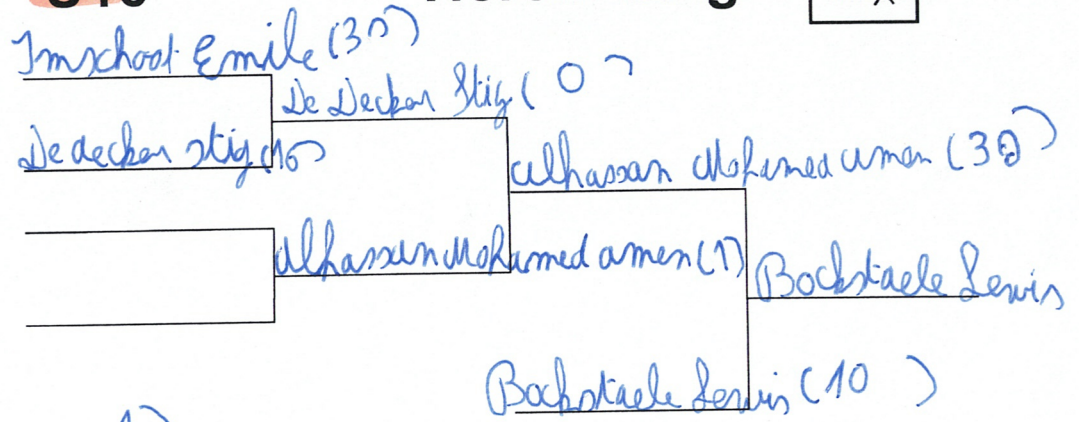 Imschoot Emile (30)
De Decker Stig (0)
Dedecker stig (10)
alhassan Mohamed amen (30)
alhassan Mohamed amen (1)
Bockstaele Lewis
Bockstaele Lewis (10)